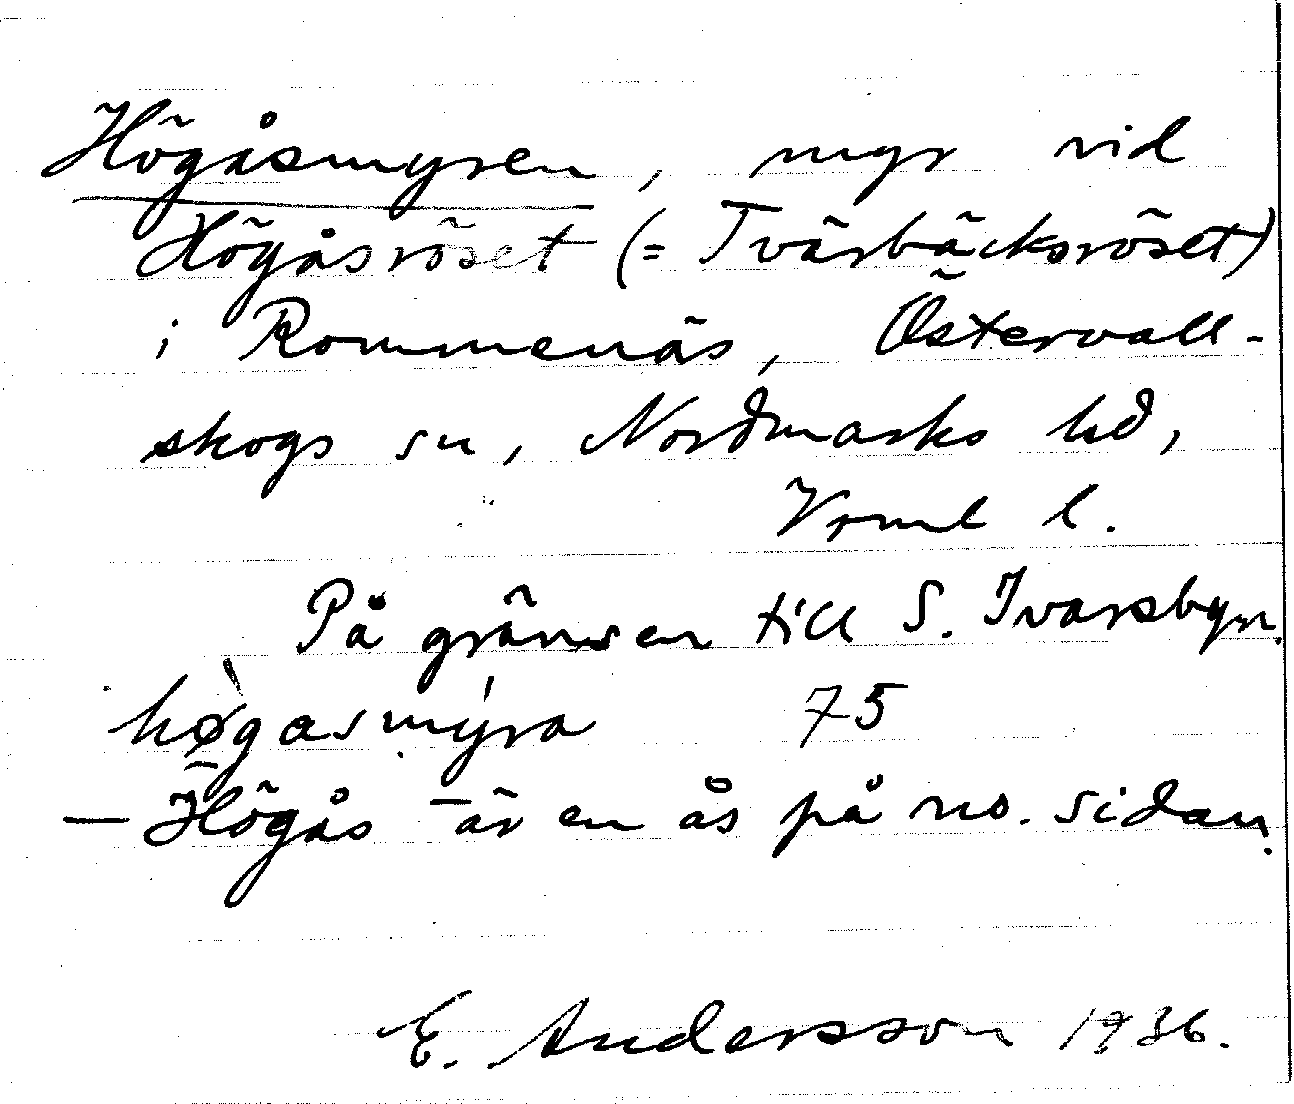 Högåsmyren, myr vid
Högåsröset (= Tvärbäcksröset)
i Rommenäs, Östervall-
skogs sn, Nordmarks hd,
Vrml l.
På gränsen till S. Ivarsbyn.
hø̀gasmýra 75
— Högås är en ås på no. sidan.
E. Andersson 1936.